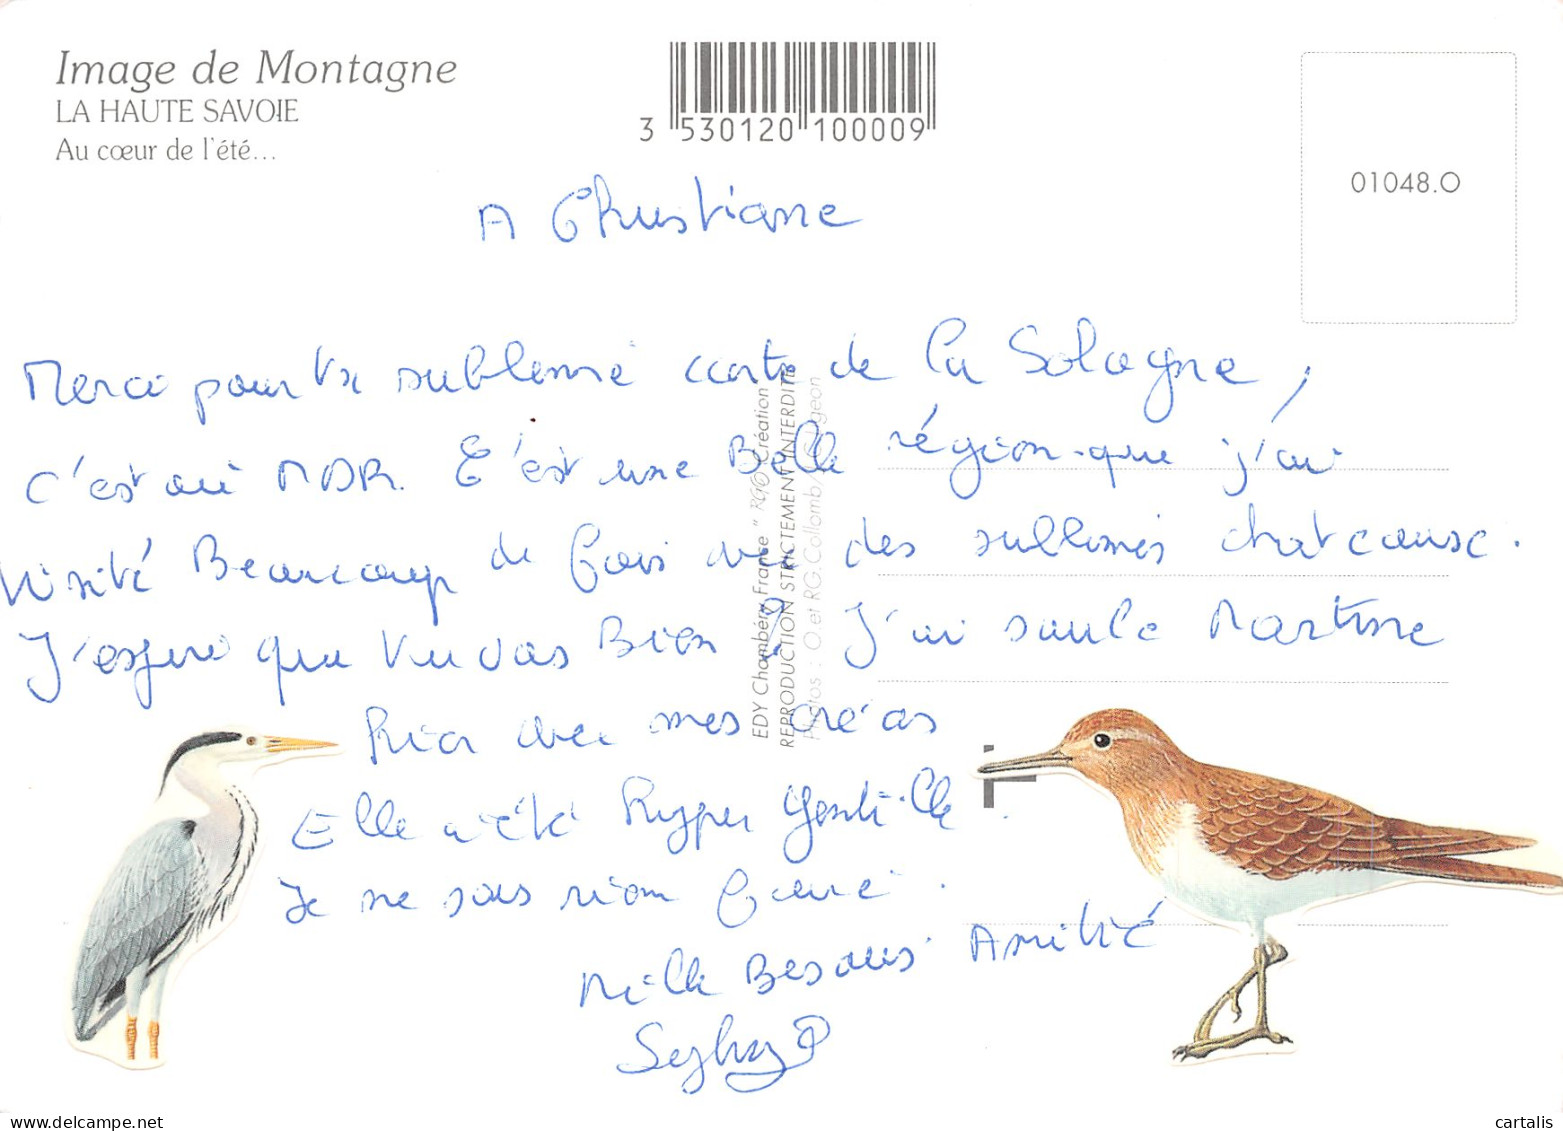 Image de Montagne
LA HAUTE SAVOIE
Au cœur de l'été...
3 530120 100009
01048.O
A Christiane
Merci pour ta sublime carte de la Sologne,
c'est MDR. C'est une Belle région que j'ai
visité Beaucoup de fois avec des sublimes chateause.
J'espere que tu vas Bien ? J'ai saulé Martine
avec mes créas
Elle a été hyper gentille.
Je ne sais rien faire.
Mille Besous Amitié
EDY Chambéry France " RGO Création"
REPRODUCTION STRICTEMENT INTERDITE
Photos : O et RG.Collomb/
delcampe.net
cartalis